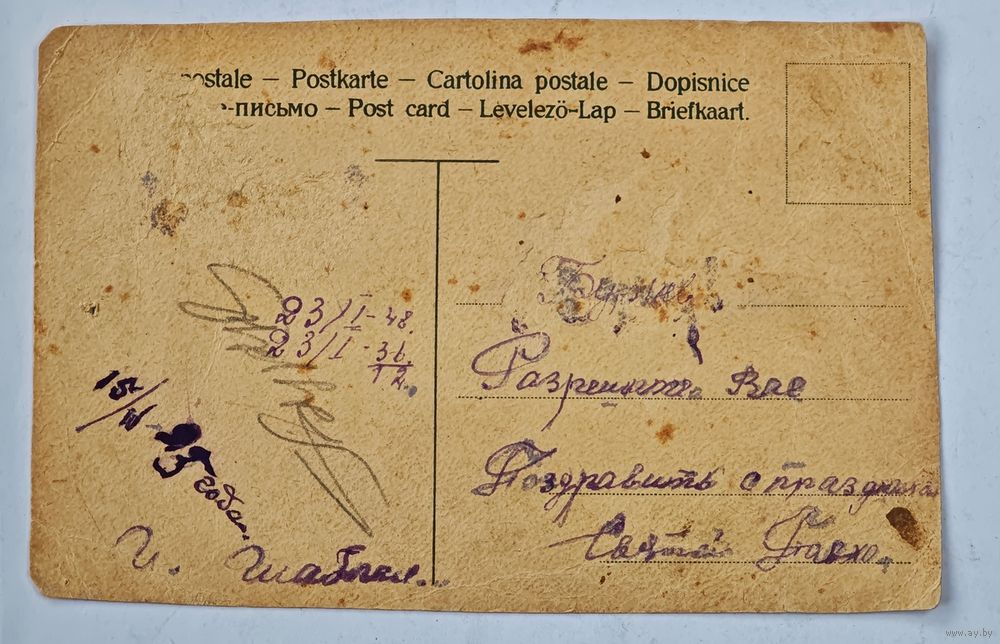 postale – Postkarte – Cartolina postale – Dopisnice
-письмо – Post card – Levelező-Lap – Briefkaart.
23/I-48.
23/I-36.
12.
15/
года.
И. Шабл
Разрешите Вас
Поздравить с праздником
Святой Пасхи.
www.ay.by